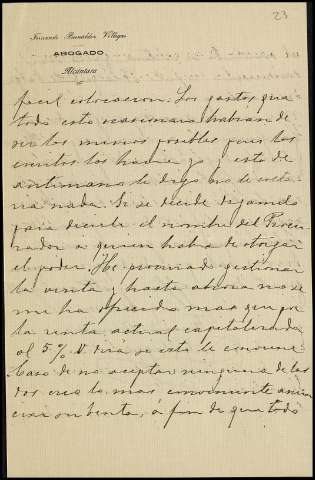 23
Fernando Bernáldez Villegas
ABOGADO
Alcántara
facil colocacion. Los gastos que
todo esto ocasionara habian de
ser los menos posibles pues los
escritos los haria yo y esto de
antemano le digo no le costa
ria nada. Si se decide digamelo
para decirle el nombre del Procu
rador a quien habra de otorgar
el poder. He procurado gestionar
la venta y hasta ahora no se
me ha ofrecido mas que por
la renta actual capitalizada
al 5 % V. dirá si esta le conviene.
Caso de no aceptar ninguna de las
dos creo lo mas conveniente anun
ciar su venta, á fin de que todo